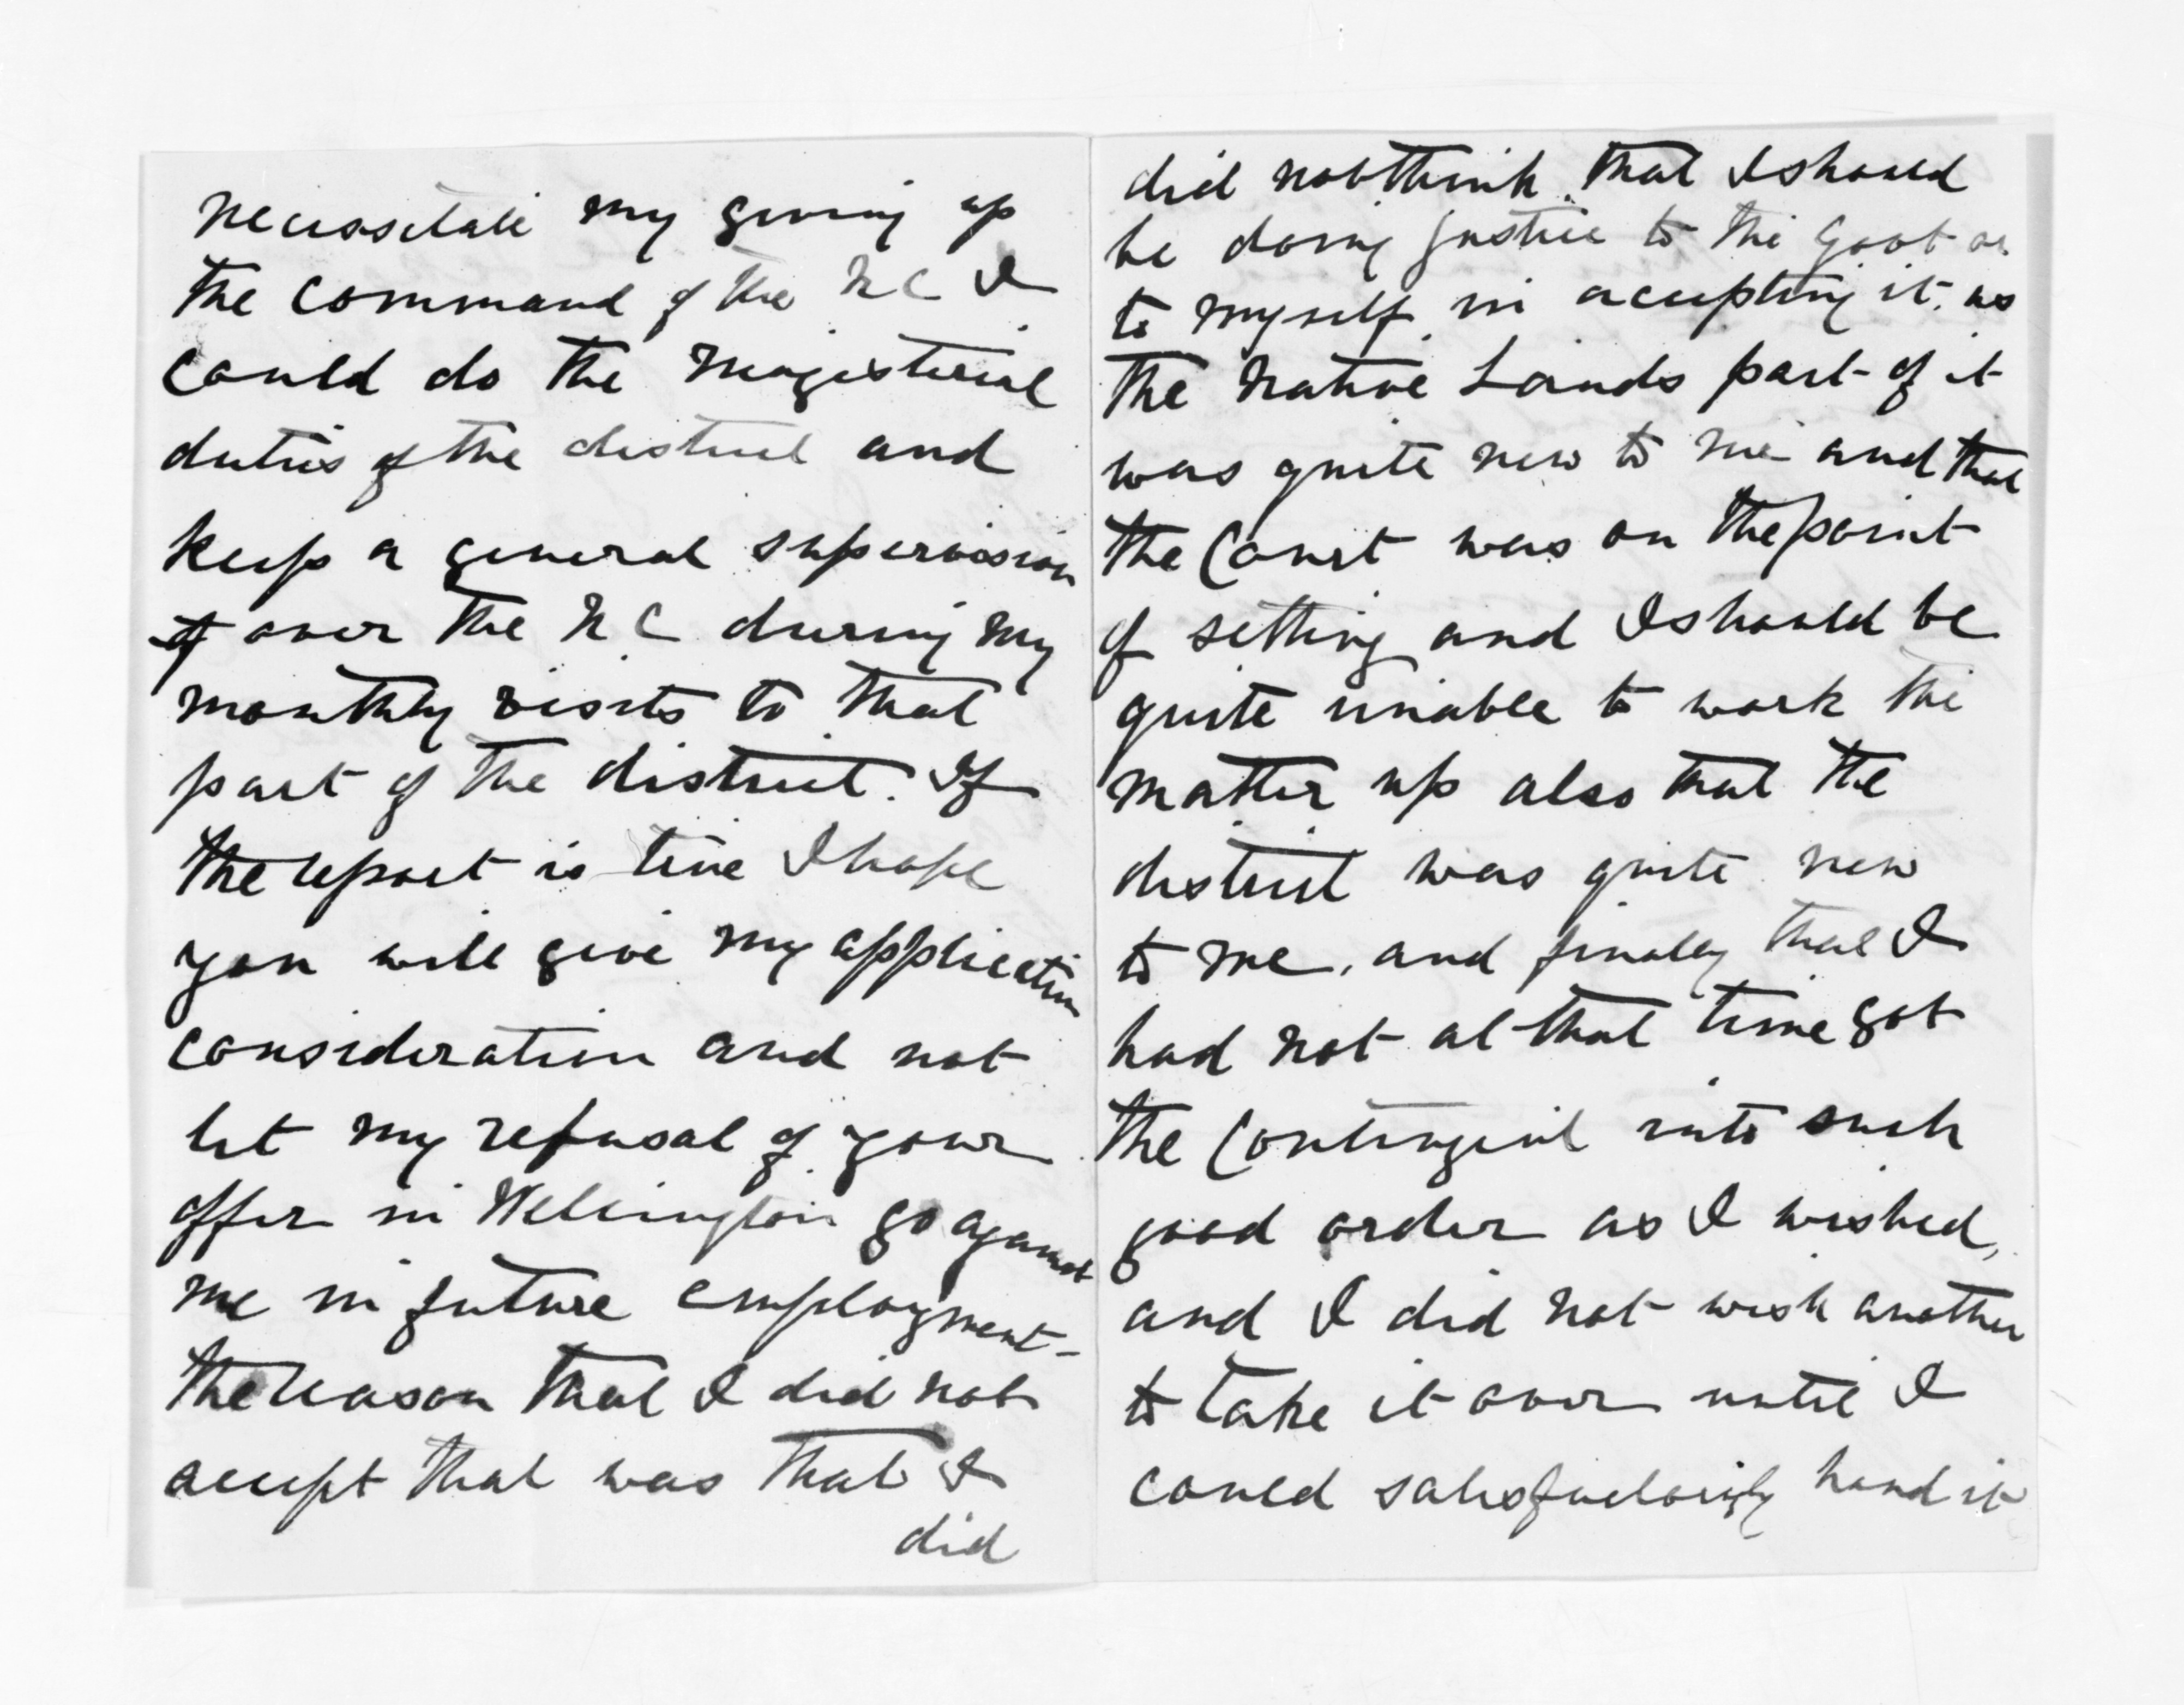 necessitate my giving up
the command of the N C I
could do the Magisterial
duties of the district and
keep a general supervision
of over the N C during my
monthly visits to that
part of the district. If
the report is true I hope
you will give my application
consideration and not
let my refusal of your
offer in Wellington go against
me in future employment-
the reason that I did not
accept that was that I
did
did not think that I should
be doing justice to the Govt or
to myself in accepting it. as
the Native Lands part of it
was quite new to me and that
the Court was on the point
of setting and I should be
quite unable to work the
matter up also that the
district was quite new
to me, and finally that I
had not at that time got
the Contingent into such
good order as I wished,
and I did not wish another
to take it over until I
could satisfactorily hand it